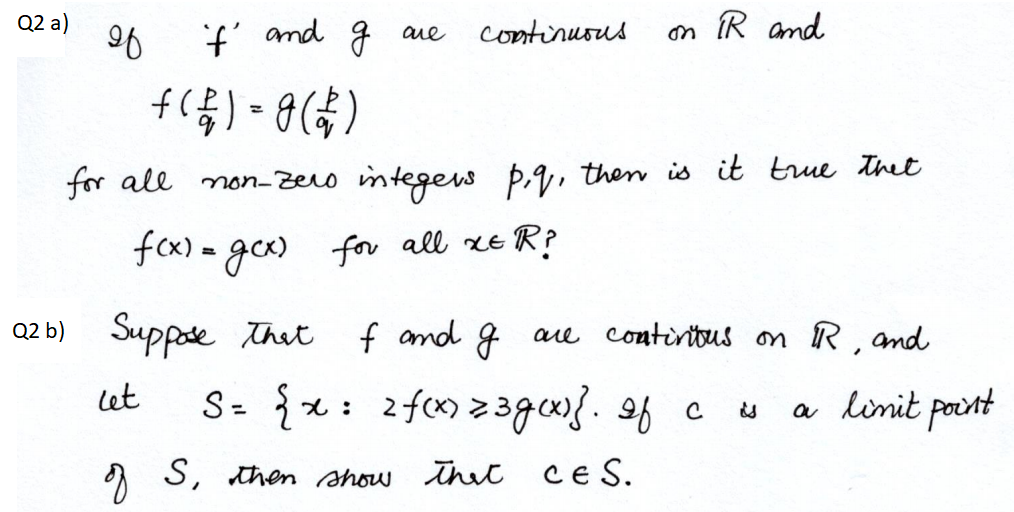 Q2 a) If 'f' and g are continuous on ℝ and
f(p/q) = g(p/q)
for all non-zero integers p,q, then is it true that
f(x) = g(x) for all x∈ℝ?
Q2 b) Suppose that f and g are continous on ℝ, and
let S = {x : 2f(x) ≥ 3g(x)}. If c is a limit point
of S, then show that c∈S.